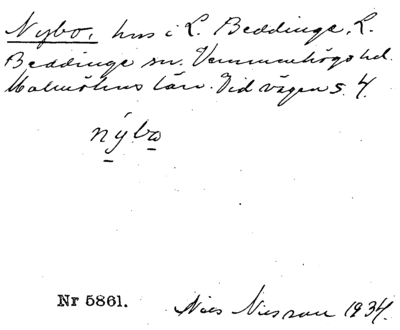 Nybo, hus i L. Beddinge, L.
Beddinge sn. Vemmenhögs hd.
Malmöhus län. Vid vägen s. 4.
nýbo
Nr 5861.
Nils Nilsson 1934.